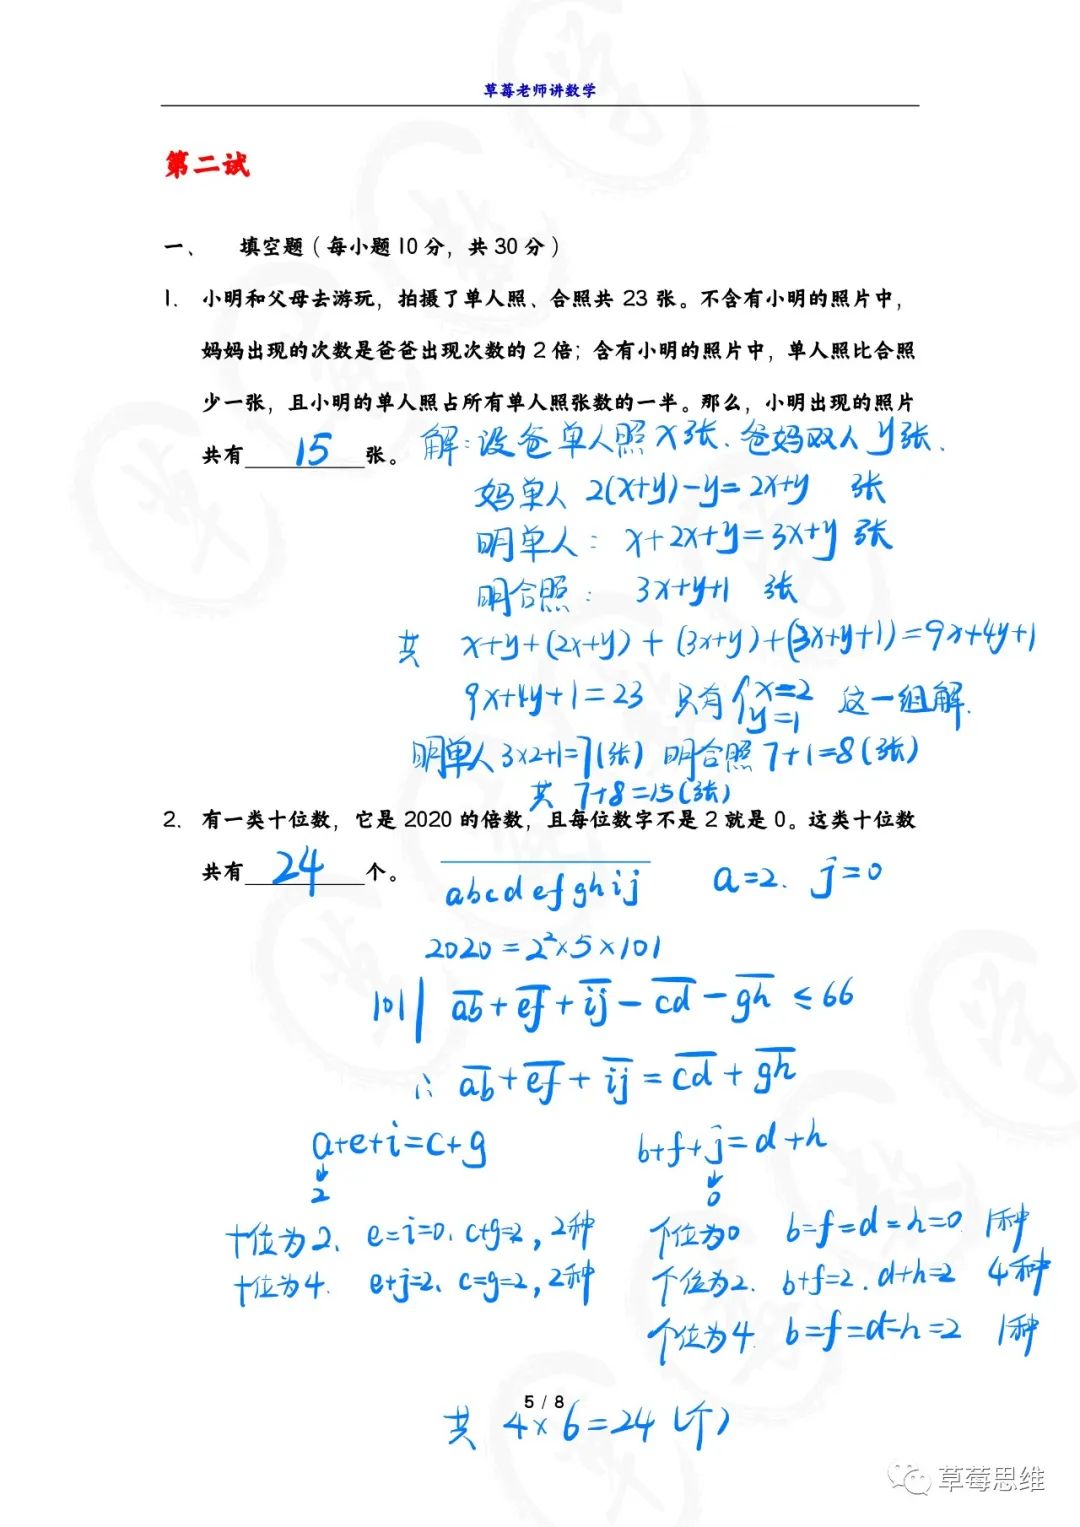 草莓老师讲数学
第二试
一、 填空题（每小题10分，共30分）
1. 小明和父母去游玩，拍摄了单人照、合照共 23 张。不含有小明的照片中，
妈妈出现的次数是爸爸出现次数的 2 倍；含有小明的照片中，单人照比合照
少一张，且小明的单人照占所有单人照张数的一半。那么，小明出现的照片
共有 15 张。 解：设爸单人照 x 张、爸妈双人 y 张.
妈单人 2(x+y)-y=2x+y 张
明单人： x+2x+y=3x+y 张
明合照： 3x+y+1 张
共 x+y+(2x+y)+(3x+y)+(3x+y+1)=9x+4y+1
9x+4y+1=23 只有{x=2 y=1 这一组解.
明单人 3×2+1=7(张) 明合照 7+1=8(张)
共 7+8=15(张)
2. 有一类十位数，它是 2020 的倍数，且每位数字不是 2 就是 0。这类十位数
共有 24 个。 abcdefghij a=2. j=0
2020=2²×5×101
101| ab+ef+ij-cd-gh≤66
∴ ab+ef+ij=cd+gh
a+e+i=c+g b+f+j=d+h
↓ 2 ↓ 0
十位为2、 e=i=0、c+g=2, 2种 个位为0 b=f=d=h=0 1种
十位为4. e+j=2、c=g=2, 2种 个位为2. b+f=2. d+h=2 4种
个位为4. b=f=d=h=2 1种
5 / 8
共 4×6=24 (个)
草莓思维